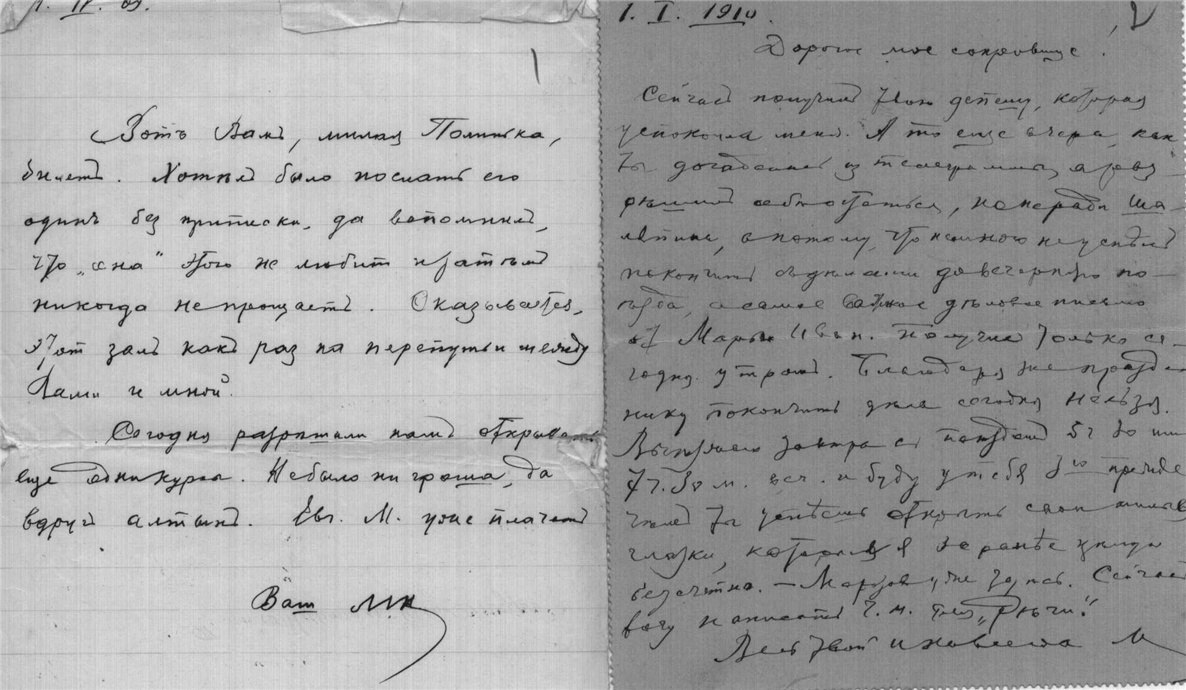 1. IV. 09.
1
Вотъ Вамъ, милая Полинька,
билетъ. Хотѣлъ было послать его
одинъ без приписки, да вспомнилъ,
что „она“ этого не любит и
никогда не прощаетъ. Оказывается,
этот залъ какъ раз на перепутьи между
Вами и мной.
Сегодня разрѣшили намъ открывать
еще одни курсы. Не было ни гроша, да
вдругъ алтынъ. Евг. М. уже плачетъ
Ваш МК
1. I. 1910.
2
Дорогое мое сокровище!
Сейчасъ получилъ твою депешу, которая
успокоила меня. А то еще вчера, как
ты догадалась из телеграммы, я
остаться, не ради Ша-
ляпина, а потому, что
покончить съ дѣлами до вечерняго по-
ѣзда, а самое важное дѣловое письмо
от Марьи Иван. получил только се-
годня утром. Благодаря же празд-
нику покончить дѣла сегодня нельзя.
Выѣзжаю завтра съ поѣздом 5 ч 30 или
7 ч. 30 м. веч. и буду у тебя прежде
чѣмъ ты успѣешь открыть свои милые
глазки, которые я заранѣе цѣлую
безсчетно. — уже здѣсь. Сейчас
написать для „Рѣчи“.
Весь твой и навсегда М